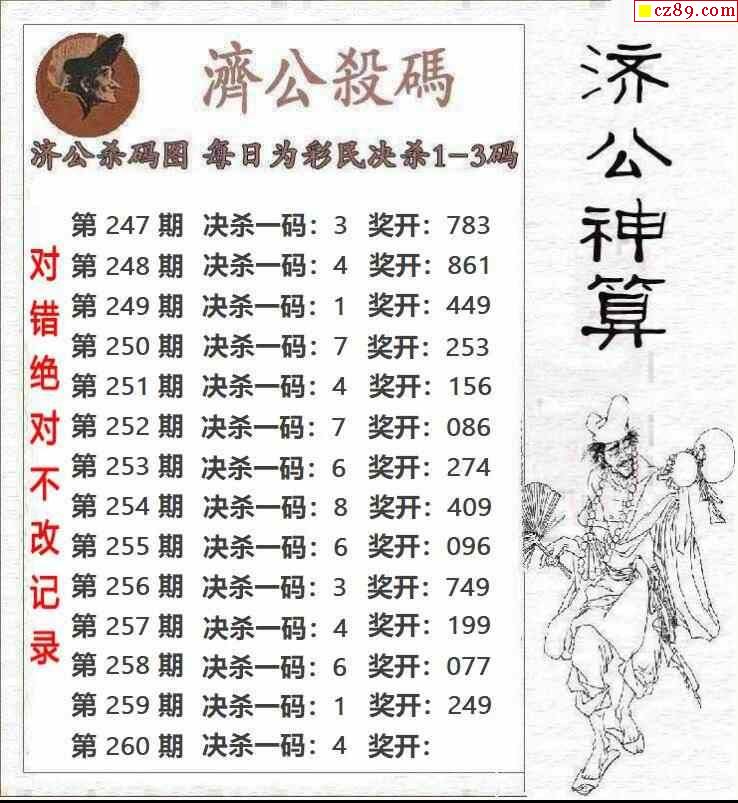 cz89.com
濟公殺碼
济公杀码图 每日为彩民决杀1-3码
第 247 期 决杀一码：3 奖开：783
第 248 期 决杀一码：4 奖开：861
第 249 期 决杀一码：1 奖开：449
第 250 期 决杀一码：7 奖开：253
第 251 期 决杀一码：4 奖开：156
第 252 期 决杀一码：7 奖开：086
第 253 期 决杀一码：6 奖开：274
第 254 期 决杀一码：8 奖开：409
第 255 期 决杀一码：6 奖开：096
第 256 期 决杀一码：3 奖开：749
第 257 期 决杀一码：4 奖开：199
第 258 期 决杀一码：6 奖开：077
第 259 期 决杀一码：1 奖开：249
第 260 期 决杀一码：4 奖开：
对错绝对不改记录
济公神算